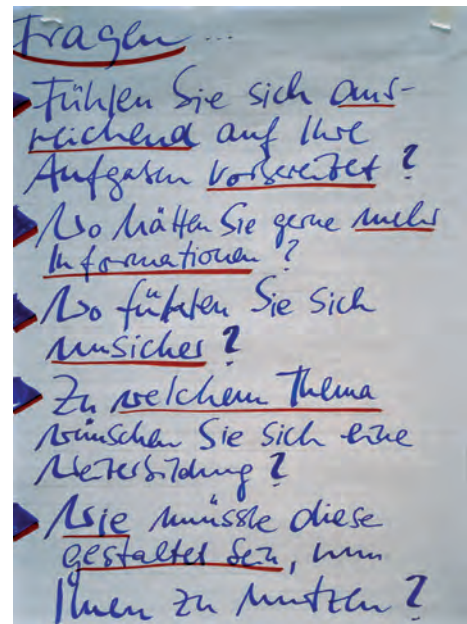 Fragen...
Fühlen Sie sich aus-
reichend auf Ihre
Aufgaben vorbereitet?
Wo hätten Sie gerne mehr
Informationen?
Wo fühlten Sie sich
unsicher?
Zu welchem Thema
wünschen Sie sich eine
Weiterbildung?
Wie müsste diese
gestaltet sein, um
Ihnen zu nutzen?